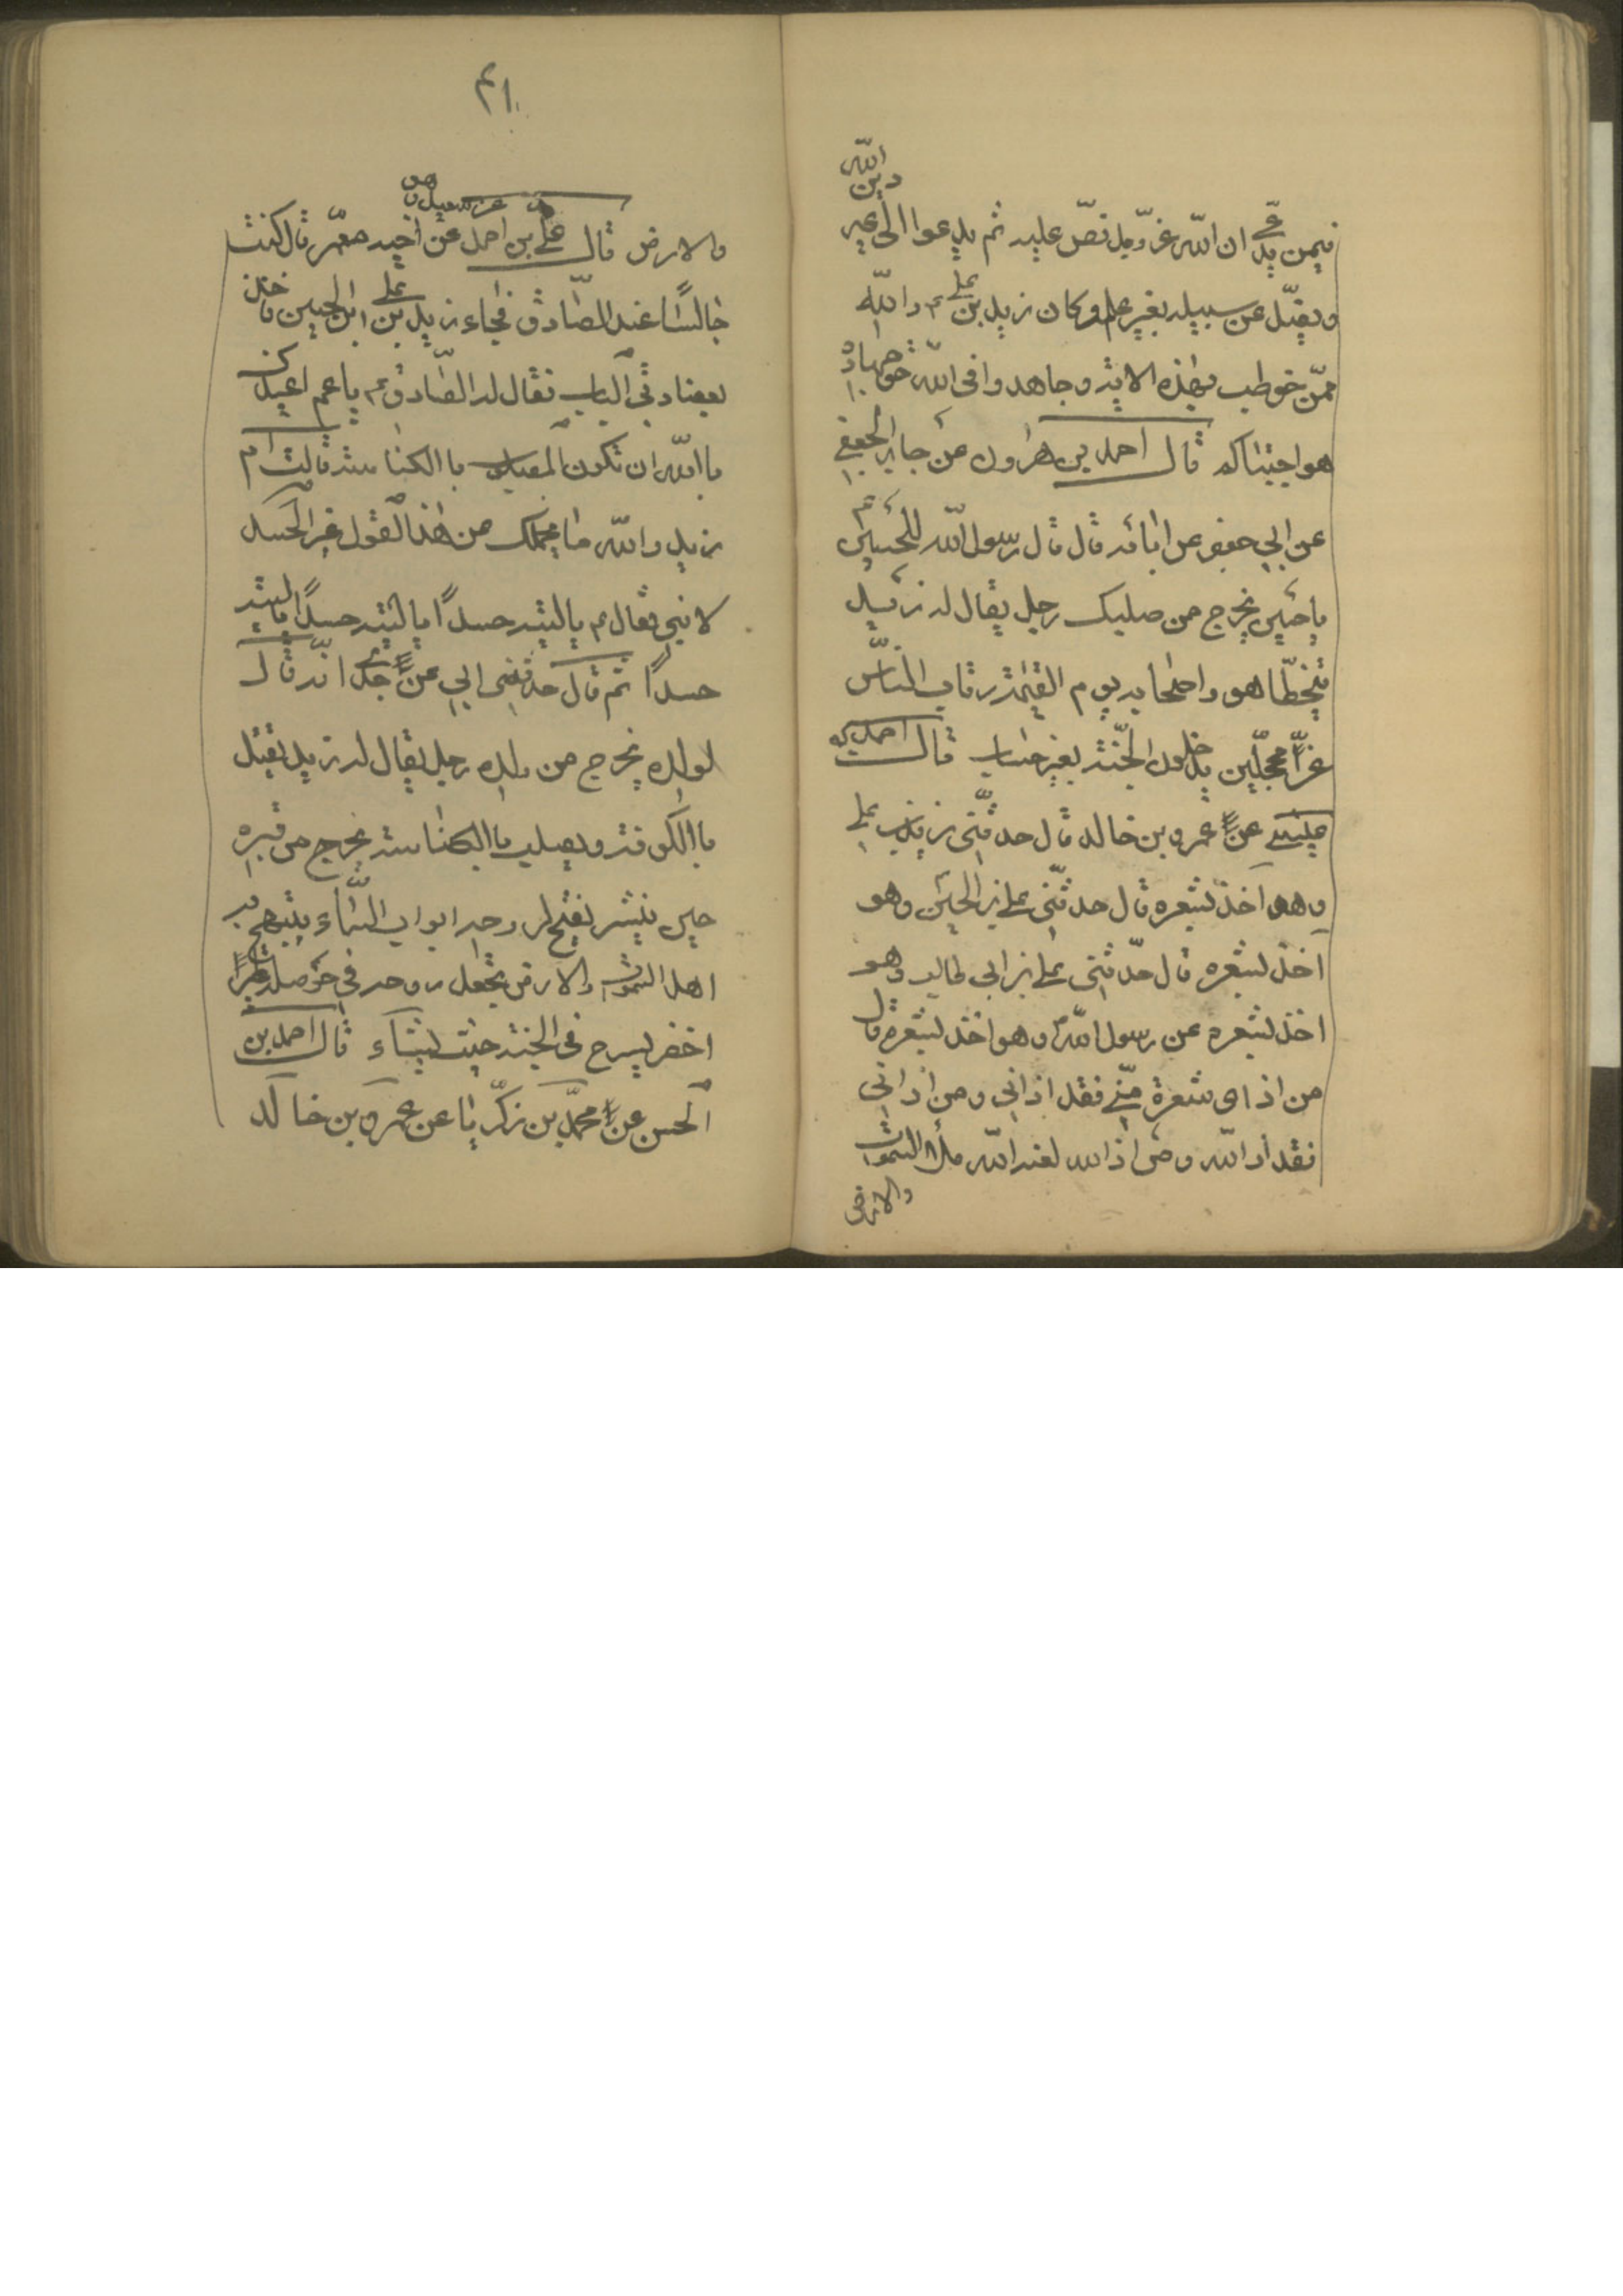 فيمن يدعي ان الله عز وجل نص عليه ثم يدعوا الى غير دين الله
ويضل عن سبيله بغير علم وكان زيد بن علي والله
ممن خوطب بهذه الاية وجاهدوا فى الله حق جهاده
هو اجتباكم قال احمد بن هرون عن جابر الجعفي
عن ابي جعفر عن ابائه قال قال رسول الله للحسين
يا حسين يخرج من صلبك رجل يقال له زيد
يتخطا هو واصحابه يوم القيمة رقاب الناس
غرا محجلين يدخلون الجنة بغير حساب قال احمد بن
عيسى عن عمرو بن خالد قال حدثني زيد بن علي
وهو اخذ بشعره قال حدثني علي بن الحسين وهو
اخذ بشعره قال حدثني علي بن ابي طالب وهو
اخذ بشعره عن رسول الله وهو اخذ بشعره قال
من اذاى شعرة مني فقد اذاني ومن اذاني
فقد اذ الله ومن اذ الله لعنه الله ملأ السموات
والارض
٤١
والارض قال علي بن احمد عن اخيه معمر قال كنت
جالسا عند الصادق فجاء زيد بن علي ابن الحسين فاخذ
بعضادتي الباب فقال له الصادق يا عم اعيذك
باالله ان تكون المصلوب باالكناسة قالت ام
زيد والله ما يحملك من هذا القول غير الحسد
لابني فقال يا ليته حسدا يا ليته حسدا يا ليته
حسدا ثم قال حدثني ابي عن جدي انه قال
لولده يخرج من ولده رجل يقال له زيد يقتل
باالكوفة ويصلب باالكناسة يخرج من قبره
حين ينشر يفتح لروحه ابواب السماء يبتهج به
اهل السموات والارض يجعل روحه في حوصلة طير
اخضر يسرح فى الجنة حيث يشاء قال احمد بن
الحسن عن محمد بن زكريا عن عمرو بن خالد